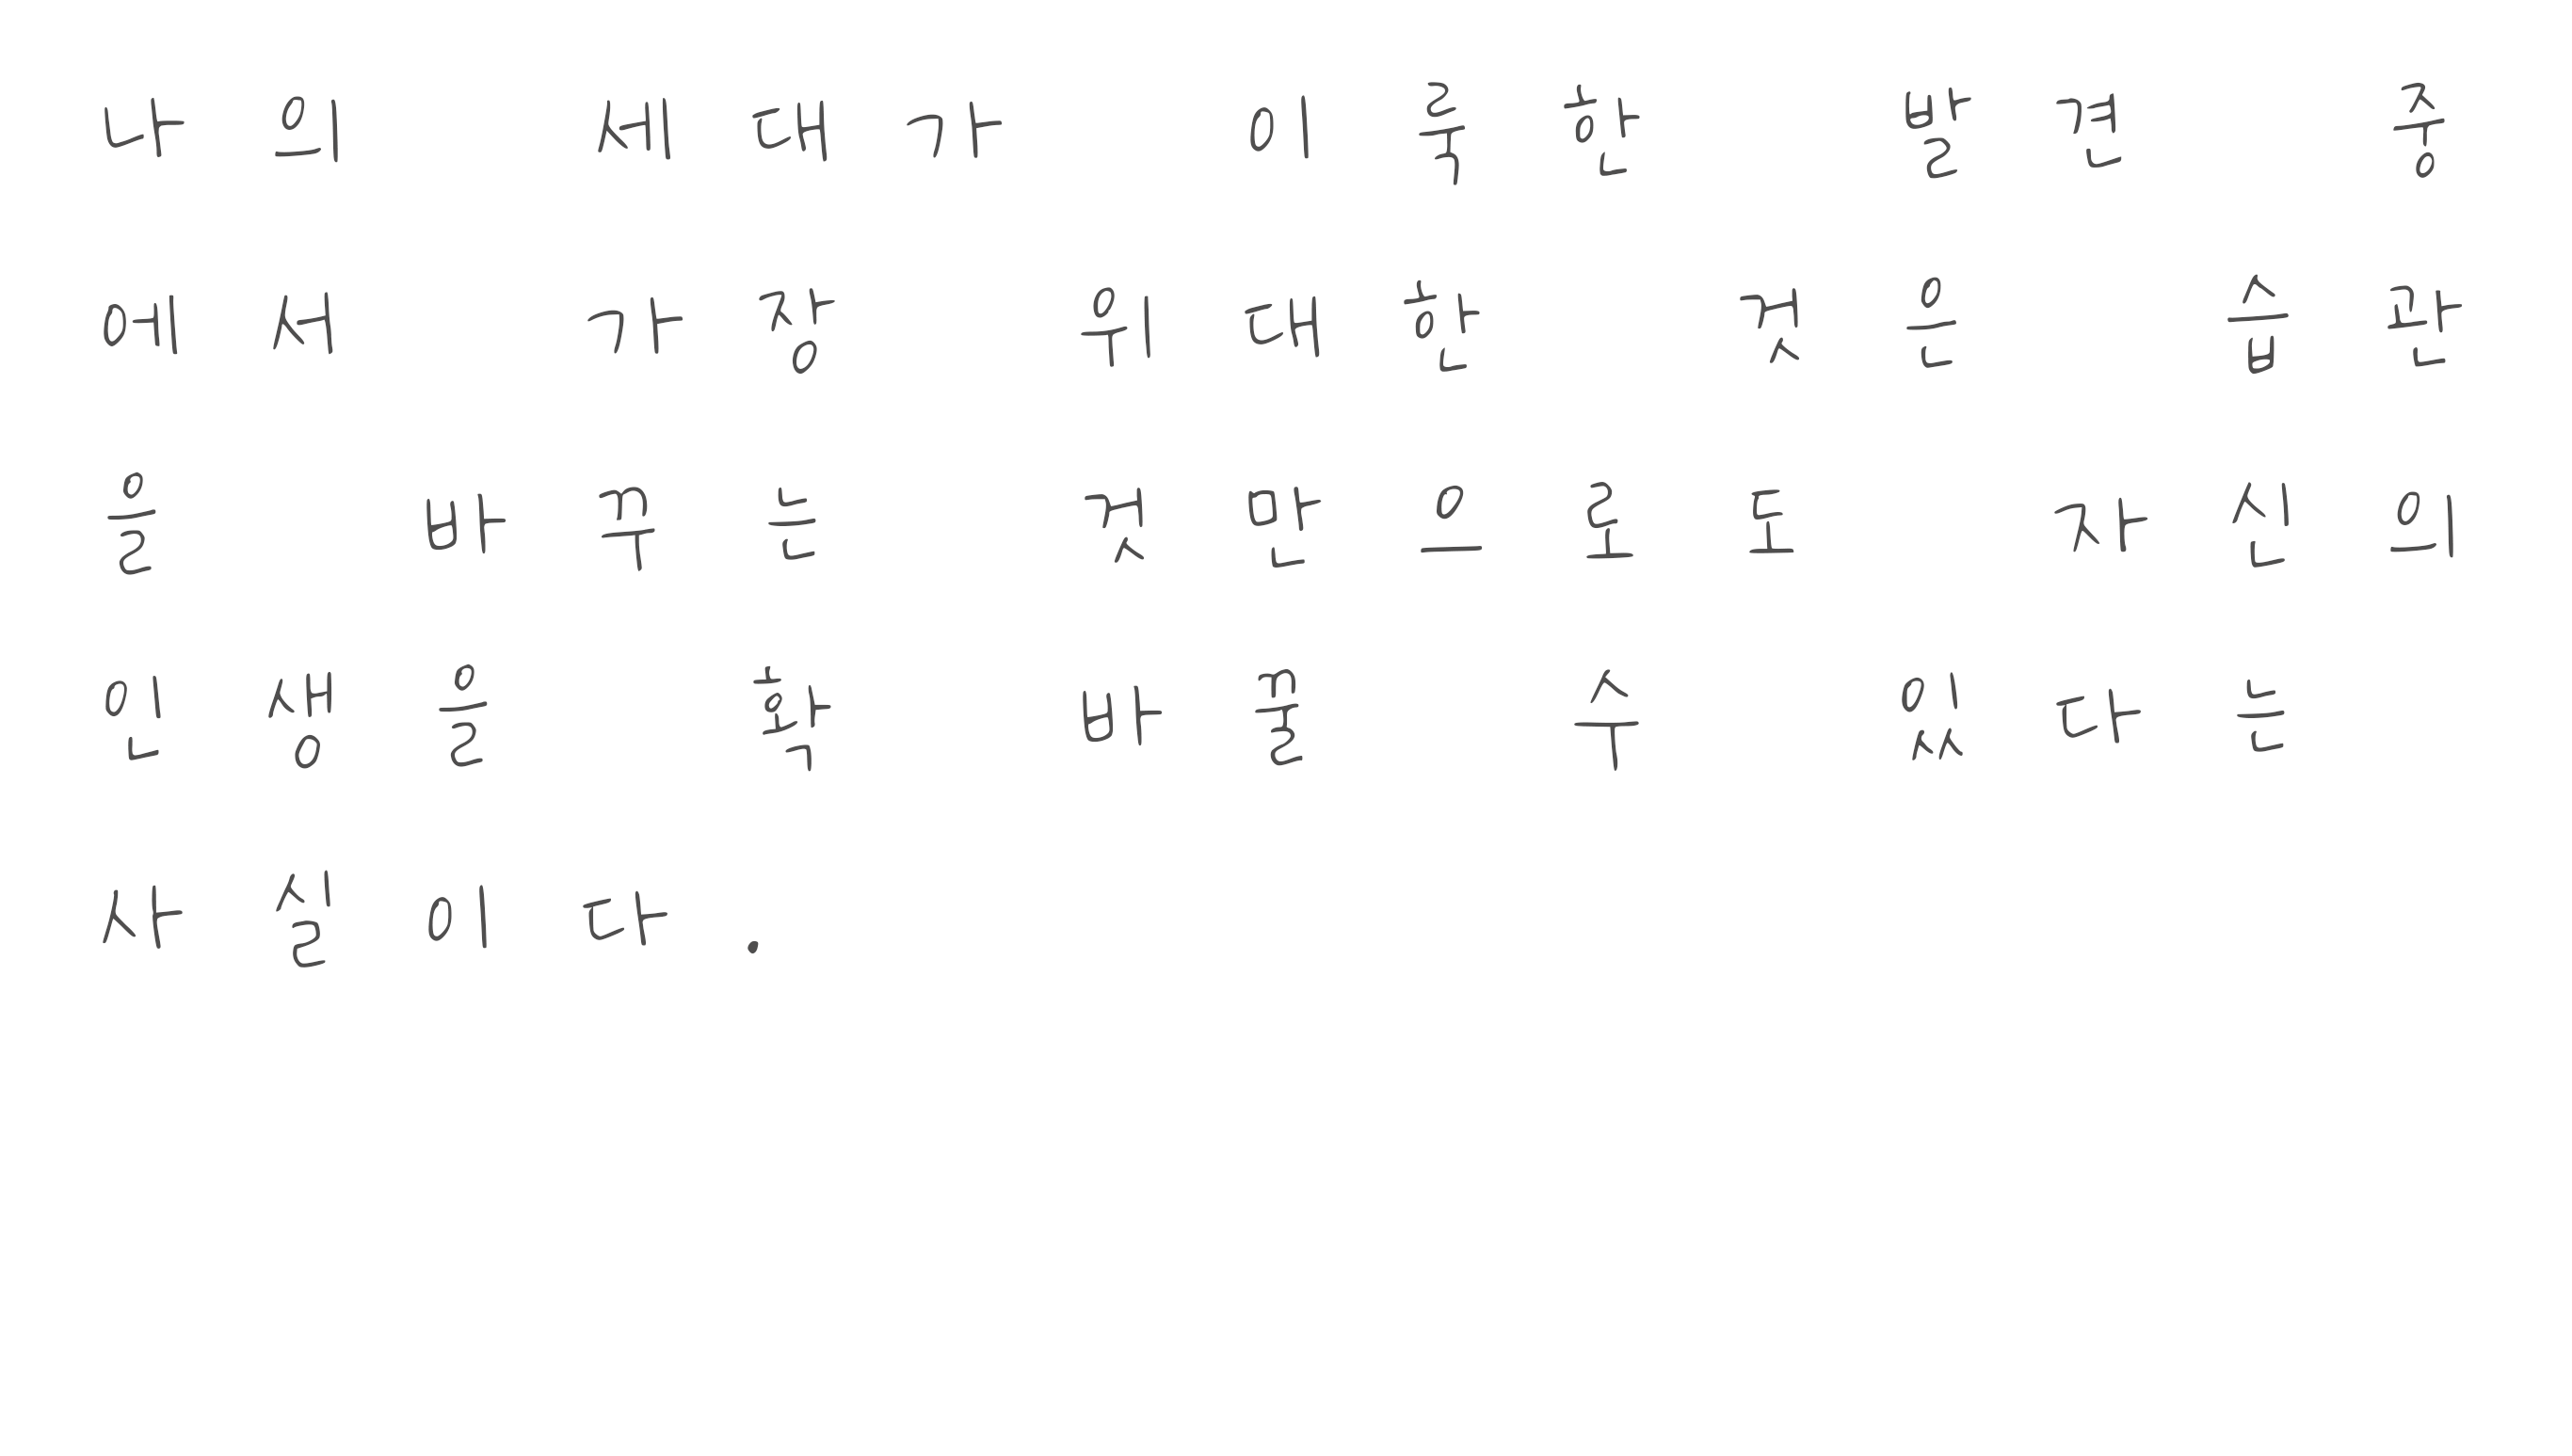 나의 세대가 이룩한 발견 중
에서 가장 위대한 것은 습관
을 바꾸는 것만으로도 자신의
인생을 확 바꿀 수 있다는
사실이다.